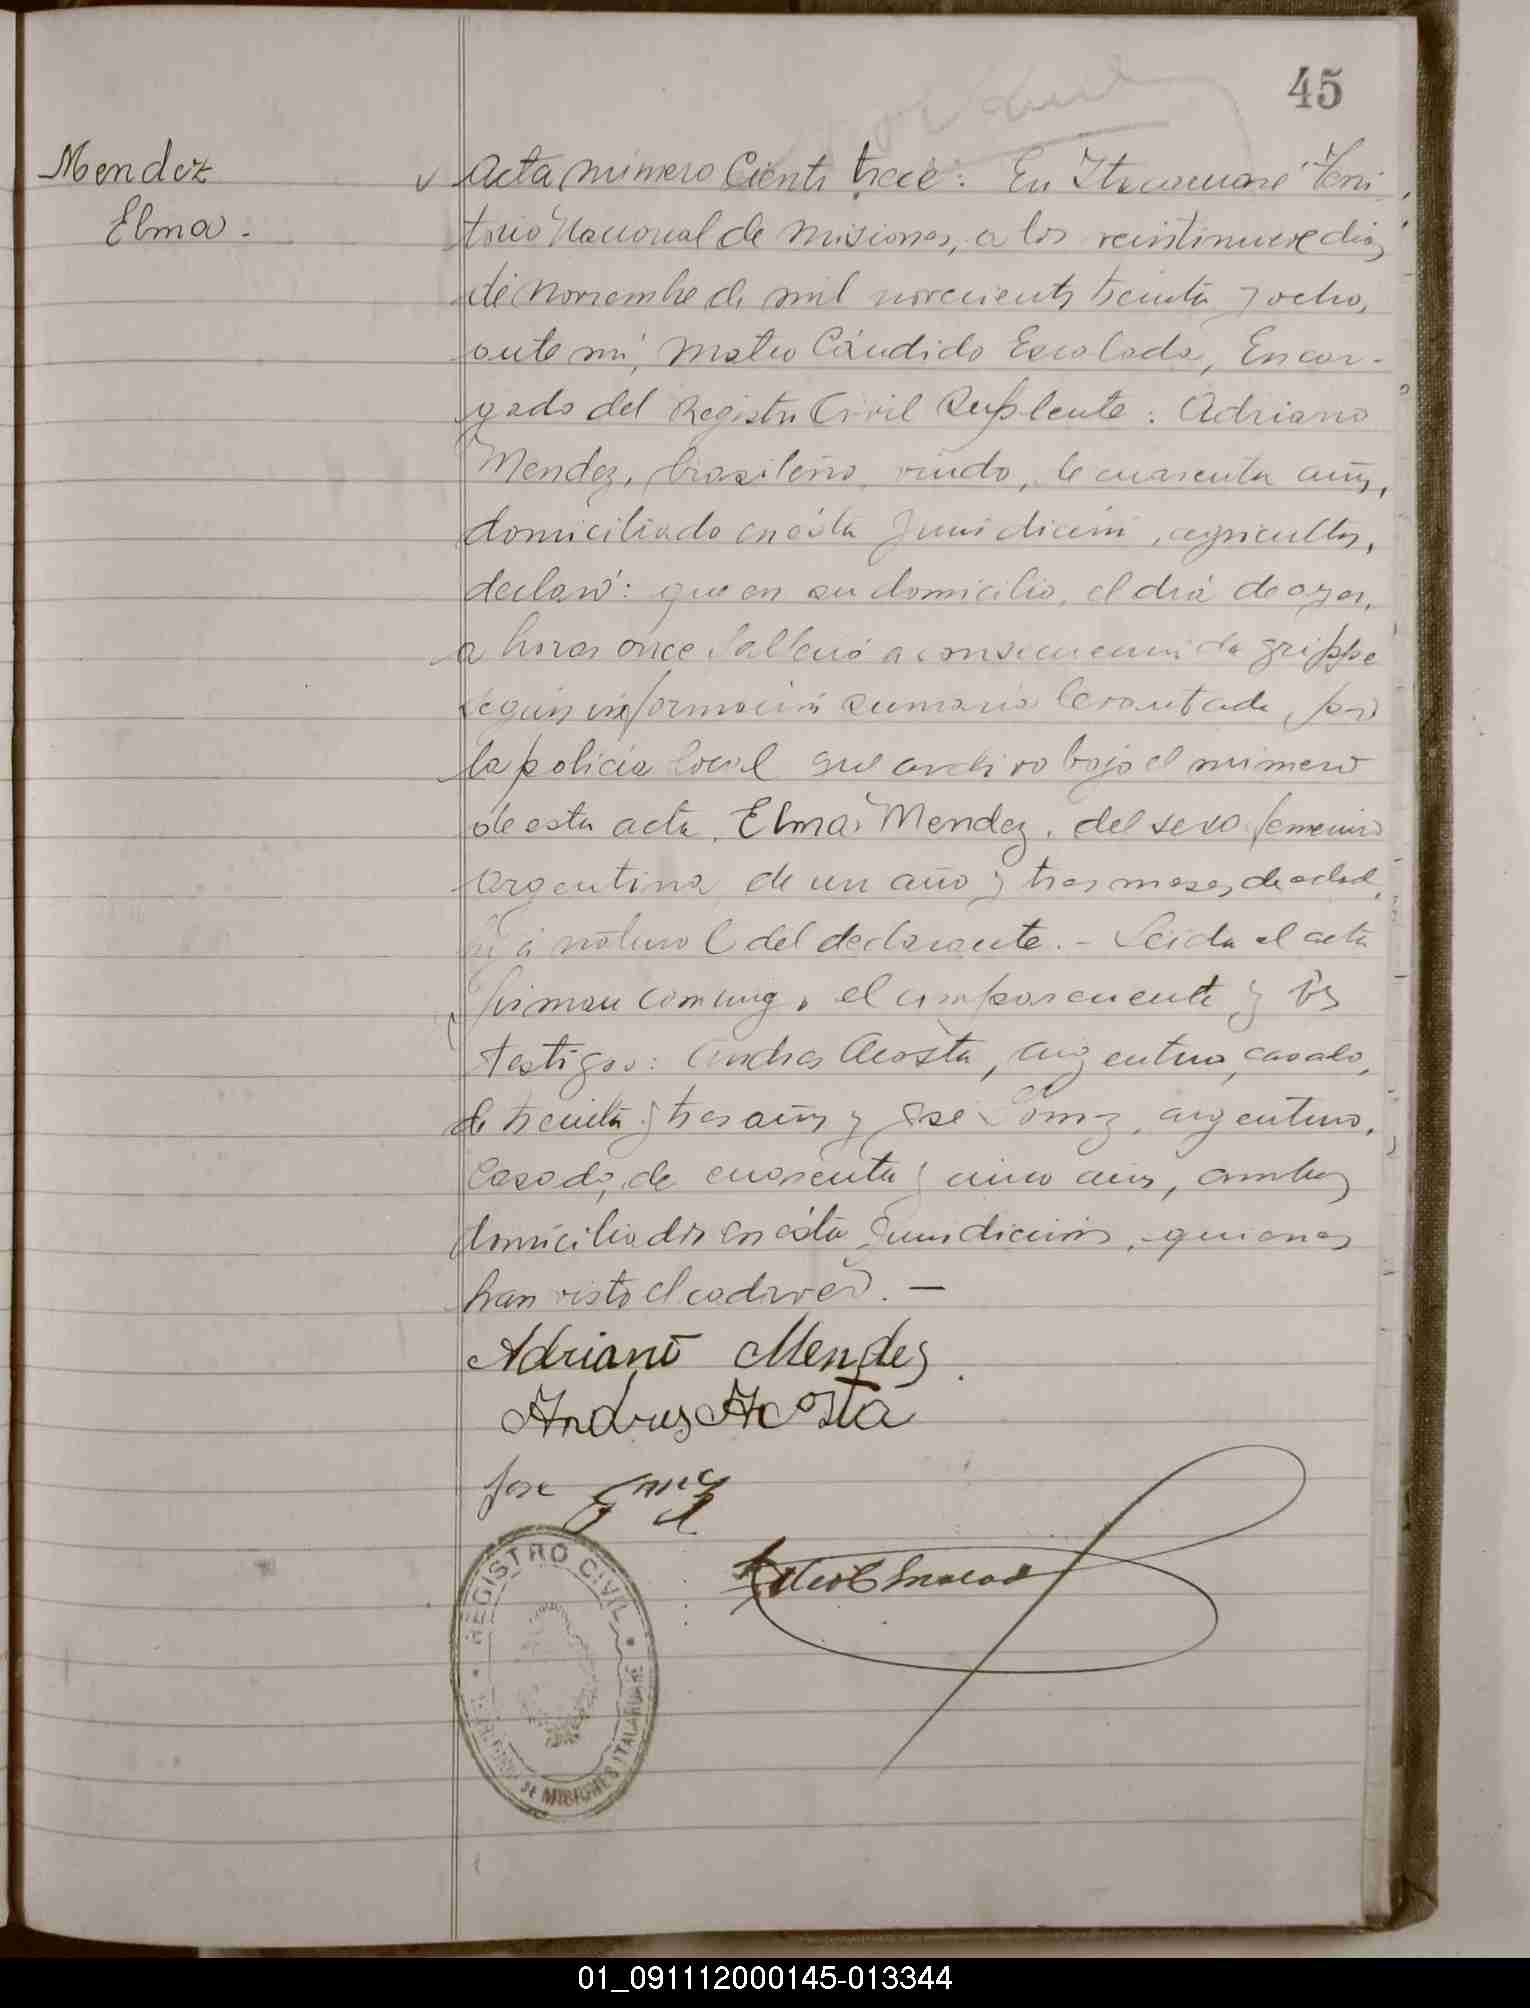 45
Mendez
Elma.
Acta número Ciento trece: En Itacaruaré Terri
torio Nacional de Misiones, a los veintinueve dias
de Noviembre de mil novecientos treinta y ocho,
ante mí, Mateo Cándido Escalada, Encar-
gado del Registro Civil Suplente: Adriano
Mendez, brasileño, viudo, de cuarenta años,
domiciliado en ésta Jurisdicción, agricultor,
declaró: que en su domicilio, el dia de ayer,
a horas once falleció a consecuencia de grippe
según información sumaria levantada por
la policia local que archivo bajo el número
de esta acta, Elma Mendez, del sexo femenino
Argentina, de un año y tres meses de edad,
hija natural del declarante.- Leida el acta
firman conmigo, el compareciente y los
testigos: Andres Acosta, argentino, casado,
de treinta y tres años y José Gomez, argentino,
Casado, de cuarenta y cinco años, ambos
domiciliados en ésta Jurisdicción, quienes
han visto el cadaver. —
Adriano Mendez
Andres Acosta
Jose
REGISTRO CIVIL
DE MISIONES ITACARUARE
01_091112000145-013344